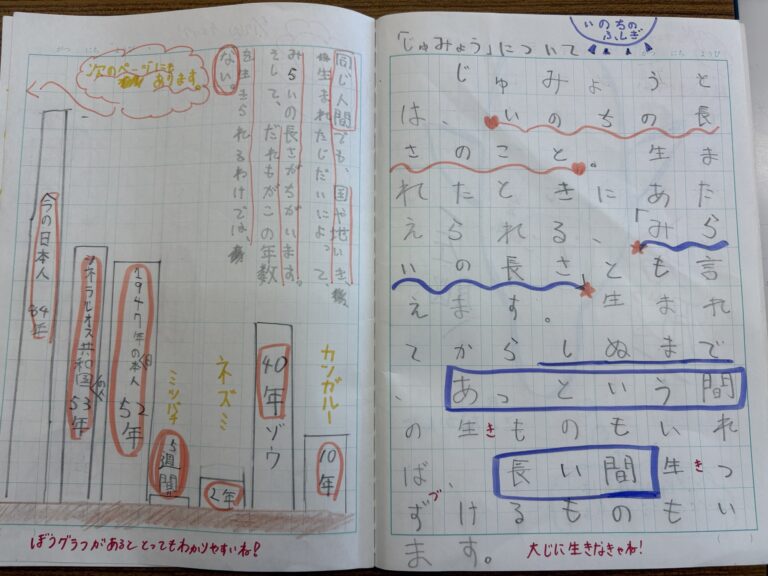 いのちの
ふしぎ
「じゅみょう」について
じゅみょうと
は、いのちの長
さのこと。生ま
れたときにあた
えられる、「みら
いの長さ」とも言
えます。生まれ
てからしぬまで
、あっという間
の生きものもいれ
ば、長い間生きつ
づけるものもい
ます。
大じに生きなきゃね!
同じ人間でも、国や地いき、
生まれたじだいによって、
みらいの長さがちがいます。
そして、だれもがこの年数
を生きられるわけでは、
ない。
次のページにも
あります。
カンガルー
10年
40年ゾウ
ネズミ
2年
ミツバチ
5週間
1947年の日本人
52年
共和国
53年
今の日本人
84年
ぼうグラフがあるととってもわかりやすいね!